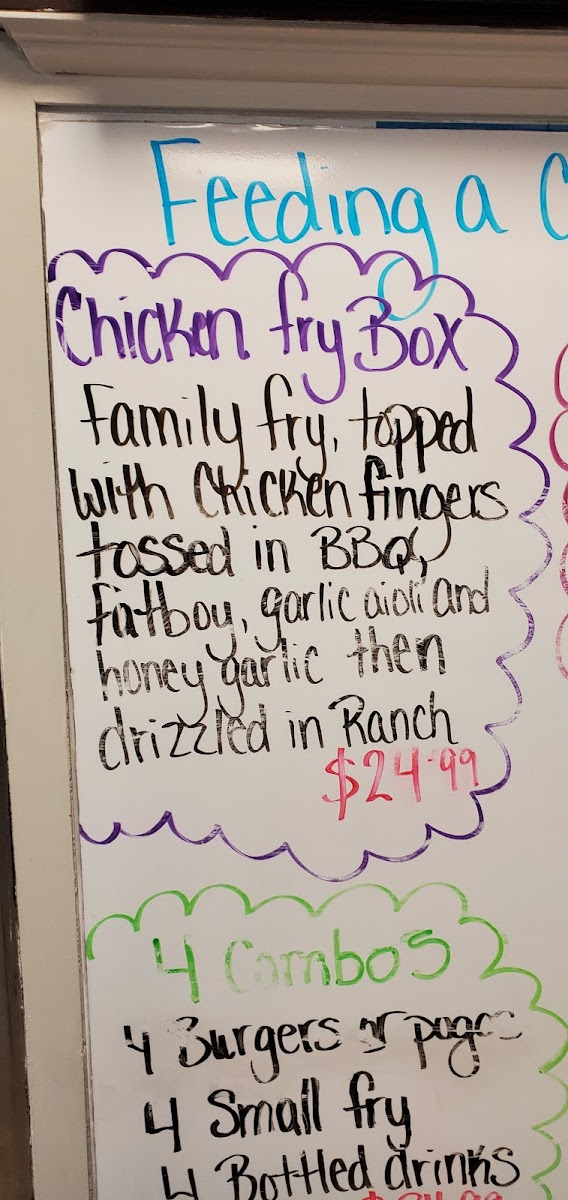 Feeding a
Chicken fry Box
Family fry, topped
with Chicken fingers
tossed in BBQ,
fatboy, garlic aioli and
honey garlic then
drizzled in Ranch
$24.99
4 Combos
4 Burgers or pogos
4 Small fry
4 Bottled drinks